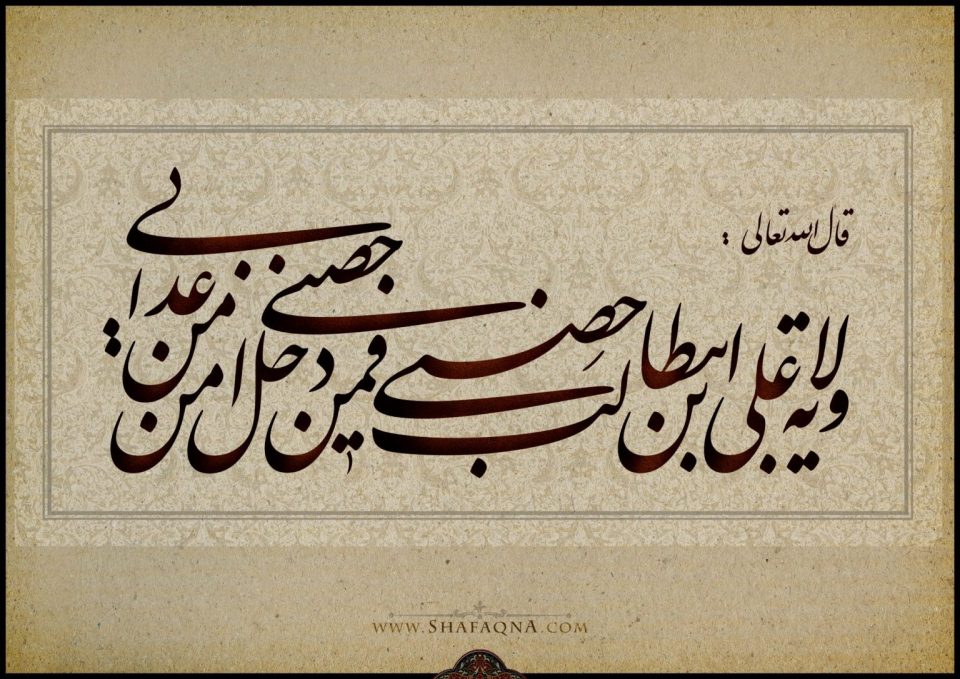 قال الله تعالی :
ولایة علی بن ابیطالب حِصنی فمن دخل حصنی امن من عذابی
www.ShafaqnA.com